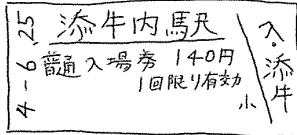 4-6.25
添牛内駅
普通入場券 140円
1回限り有効
小
入・添牛